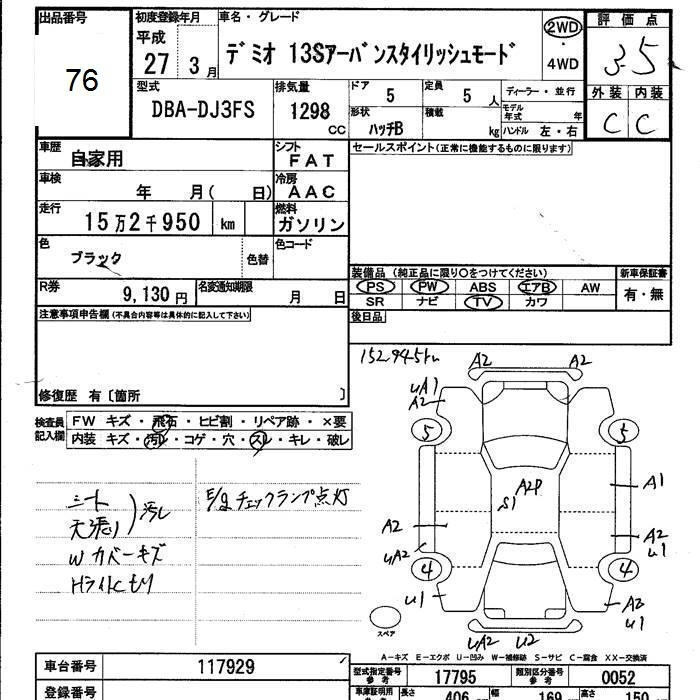 出品番号
76
初度登録年月
平成
27 3 月
車名・グレード
デミオ 13Sアーバンスタイリッシュモード
2WD
・
4WD
評価点
3.5
外装 内装
C C
型式
DBA-DJ3FS
排気量
1298
CC
ドア
5
定員
5 人
形状
ハッチB
積載
kg
ディーラー・並行
モデル年式 年
ハンドル 左・右
車歴
自家用
シフト
FAT
セールスポイント(正常に機能するものに限ります)
車検
年 月( 日)
冷房
AAC
走行
15万2千950 km
燃料
ガソリン
色
ブラック
色替
色コード
R券
9,130円
名変通知期限
月 日
装備品 (純正品に限り○をつけてください)
PS PW ABS エアB AW
SR ナビ TV カワ
新車保証書
有・無
後日品
注意事項申告欄(不具合内容等は具体的に記入して下さい)
修復歴 有〔箇所 〕
152945km
検査員記入欄
FW キズ・飛石・ヒビ割・リペア跡・×要
内装 キズ・汚レ・コゲ・穴・スレ・キレ・破レ
シート
天張り
汚レ
Wカバーキズ
HライトCモリ
E/gチェックランプ点灯
A2 A2
UA1
A2
5 5
A2P
S1
A1
A2
UA2
A2
U1
4 4
U1
A2
U1
UA2 U2
スペア
A-キズ E-エクボ U-凹み W-補修跡 S-サビ C-腐食 XX-交換済
車台番号
117929
型式指定番号
参考
17795
類別区分番号
参考
0052
登録番号
車検証明用
参考
長さ
406
幅
169
高さ
150